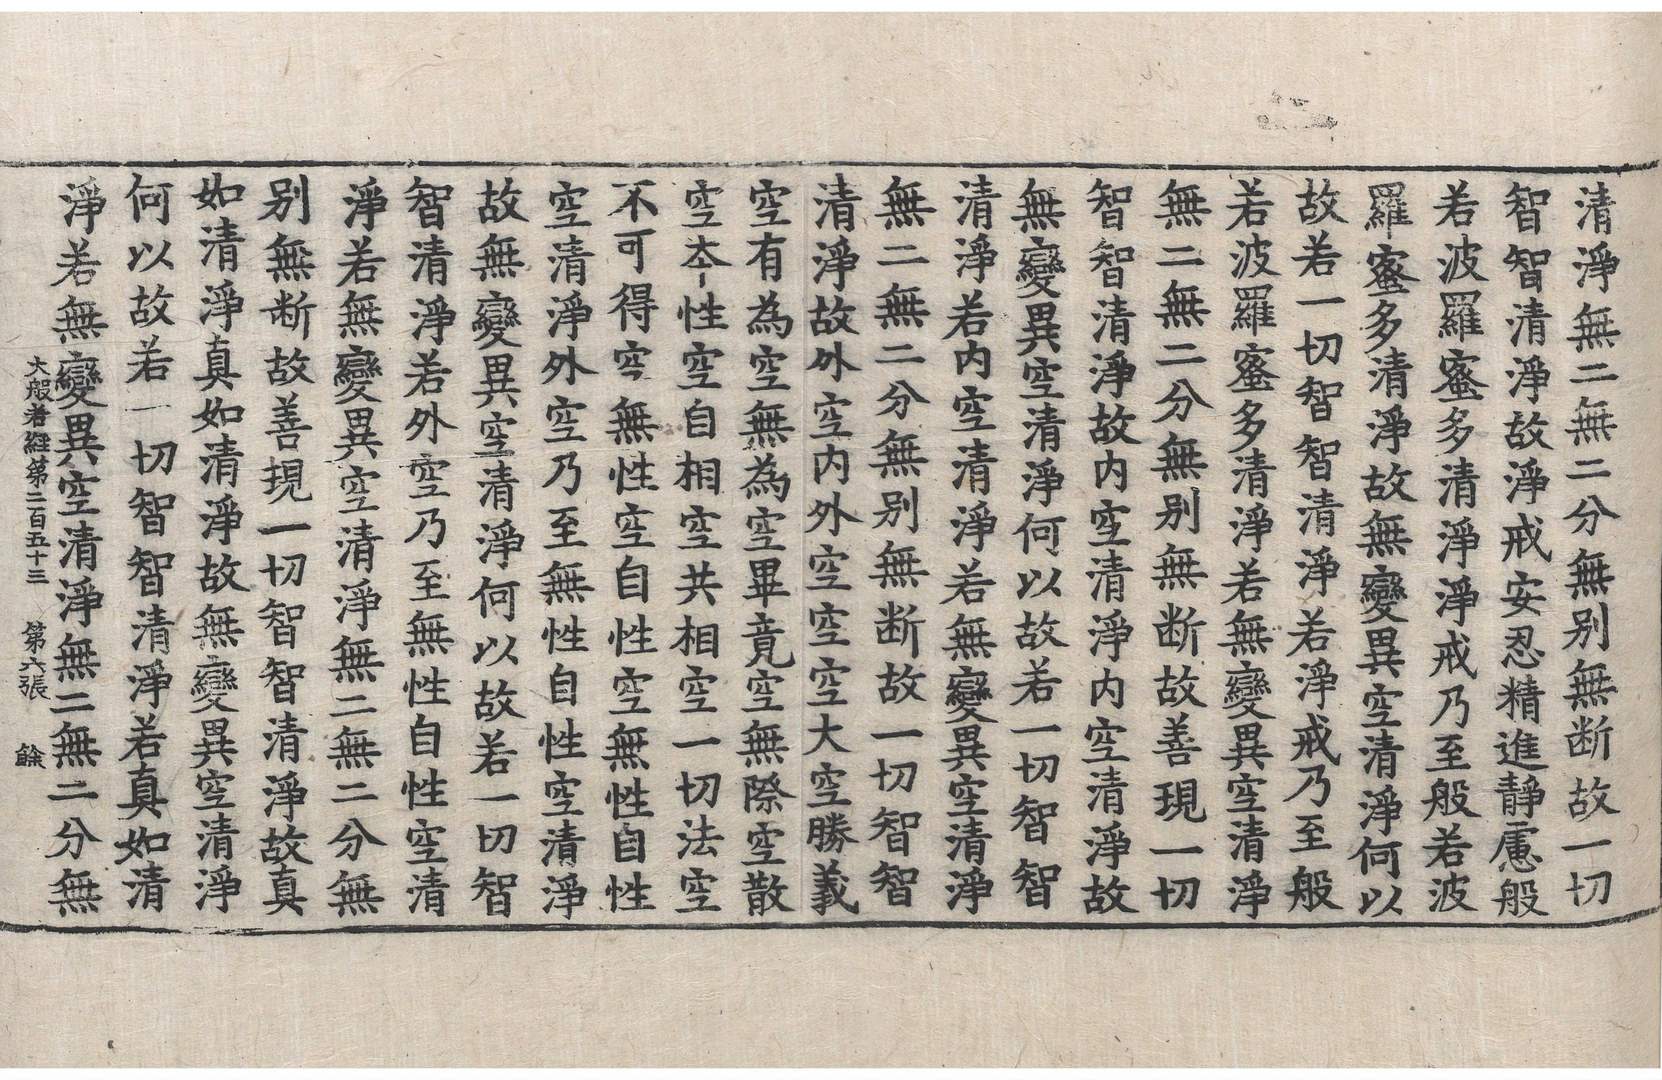 清淨無二無二分無别無断故一切
智智清淨故淨戒安忍精進靜慮般
若波羅蜜多清淨淨戒乃至般若波
羅蜜多清淨故無變異空清淨何以
故若一切智智清淨若淨戒乃至般
若波羅蜜多清淨若無變異空清淨
無二無二分無别無断故善現一切
智智清淨故内空清淨内空清淨故
無變異空清淨何以故若一切智智
清淨若内空清淨若無變異空清淨
無二無二分無别無断故一切智智
清淨故外空内外空空空大空勝義
空有為空無為空畢竟空無際空散
空夲性空自相空共相空一切法空
不可得空無性空自性空無性自性
空清淨外空乃至無性自性空清淨
故無變異空清淨何以故若一切智
智清淨若外空乃至無性自性空清
淨若無變異空清淨無二無二分無
别無断故善現一切智智清淨故真
如清淨真如清淨故無變異空清淨
何以故若一切智智清淨若真如清
淨若無變異空清淨無二無二分無
大般若經第二百五十三 第六張 餘